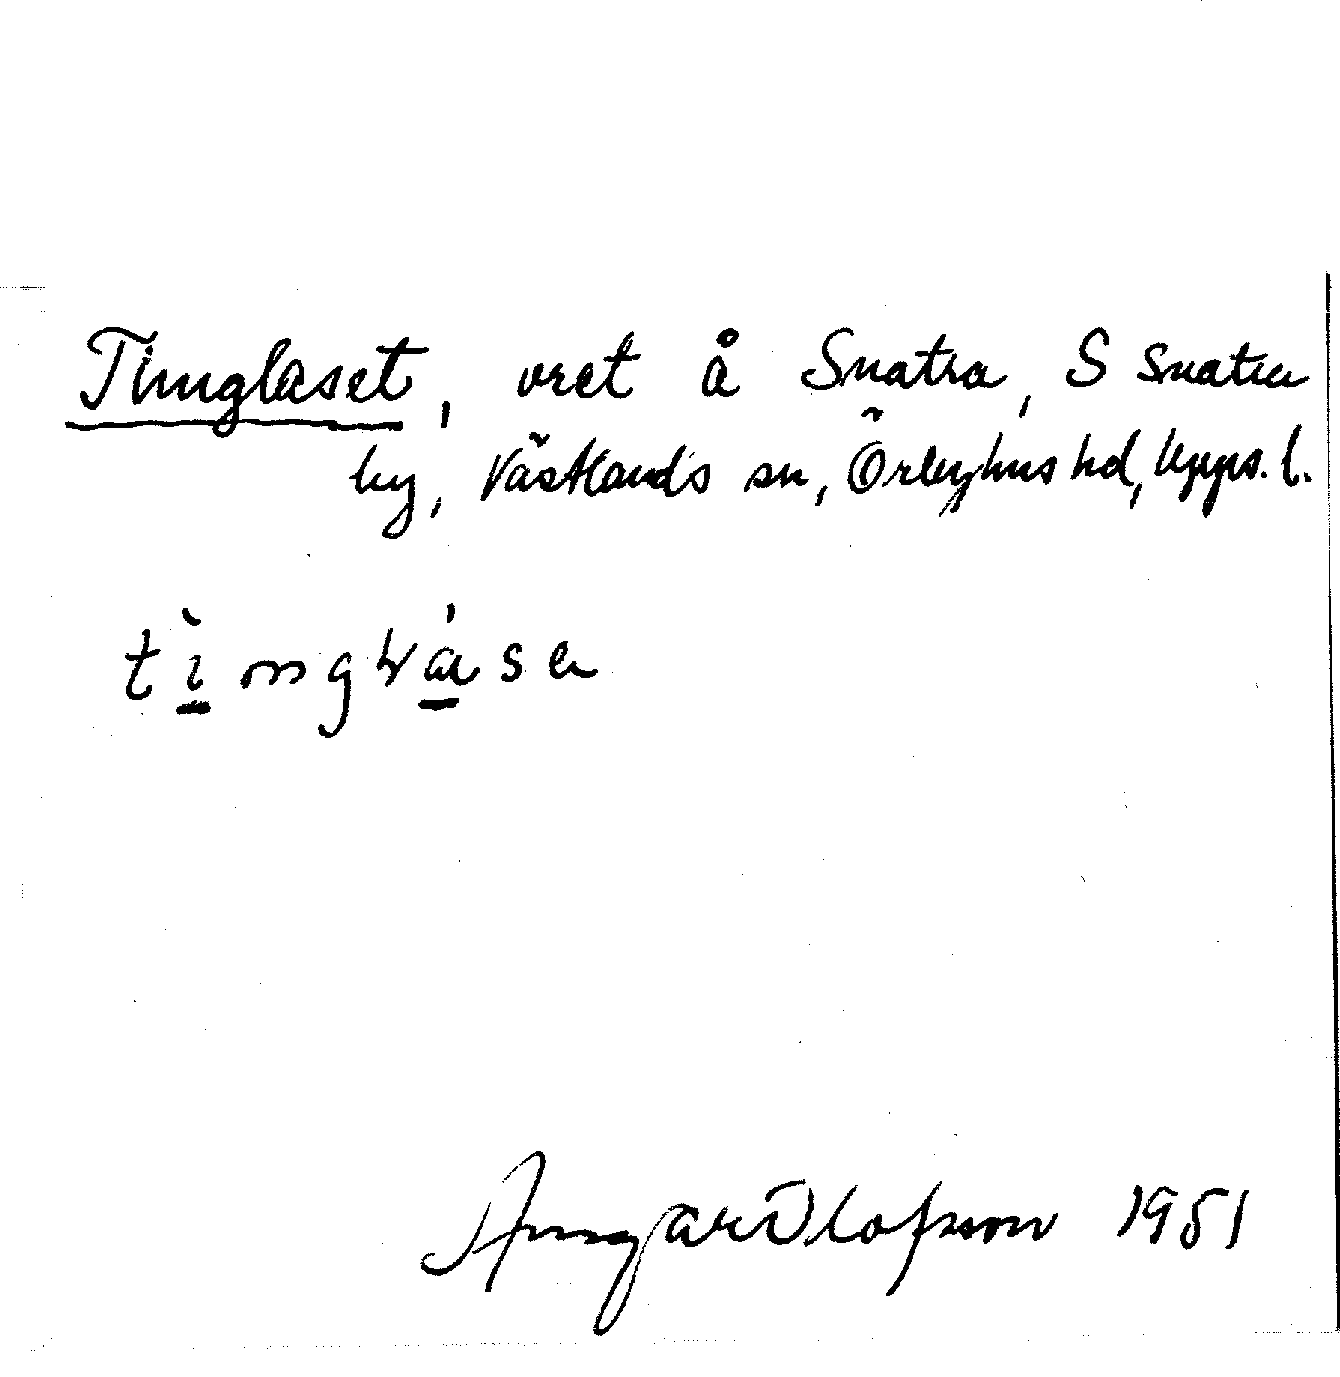 Timglaset, vret å Snatra, S Snatra
by, Västlands sn, Örbyhus hd, Upps. l.
tìmgláse
Ingvar Olofsson 1951